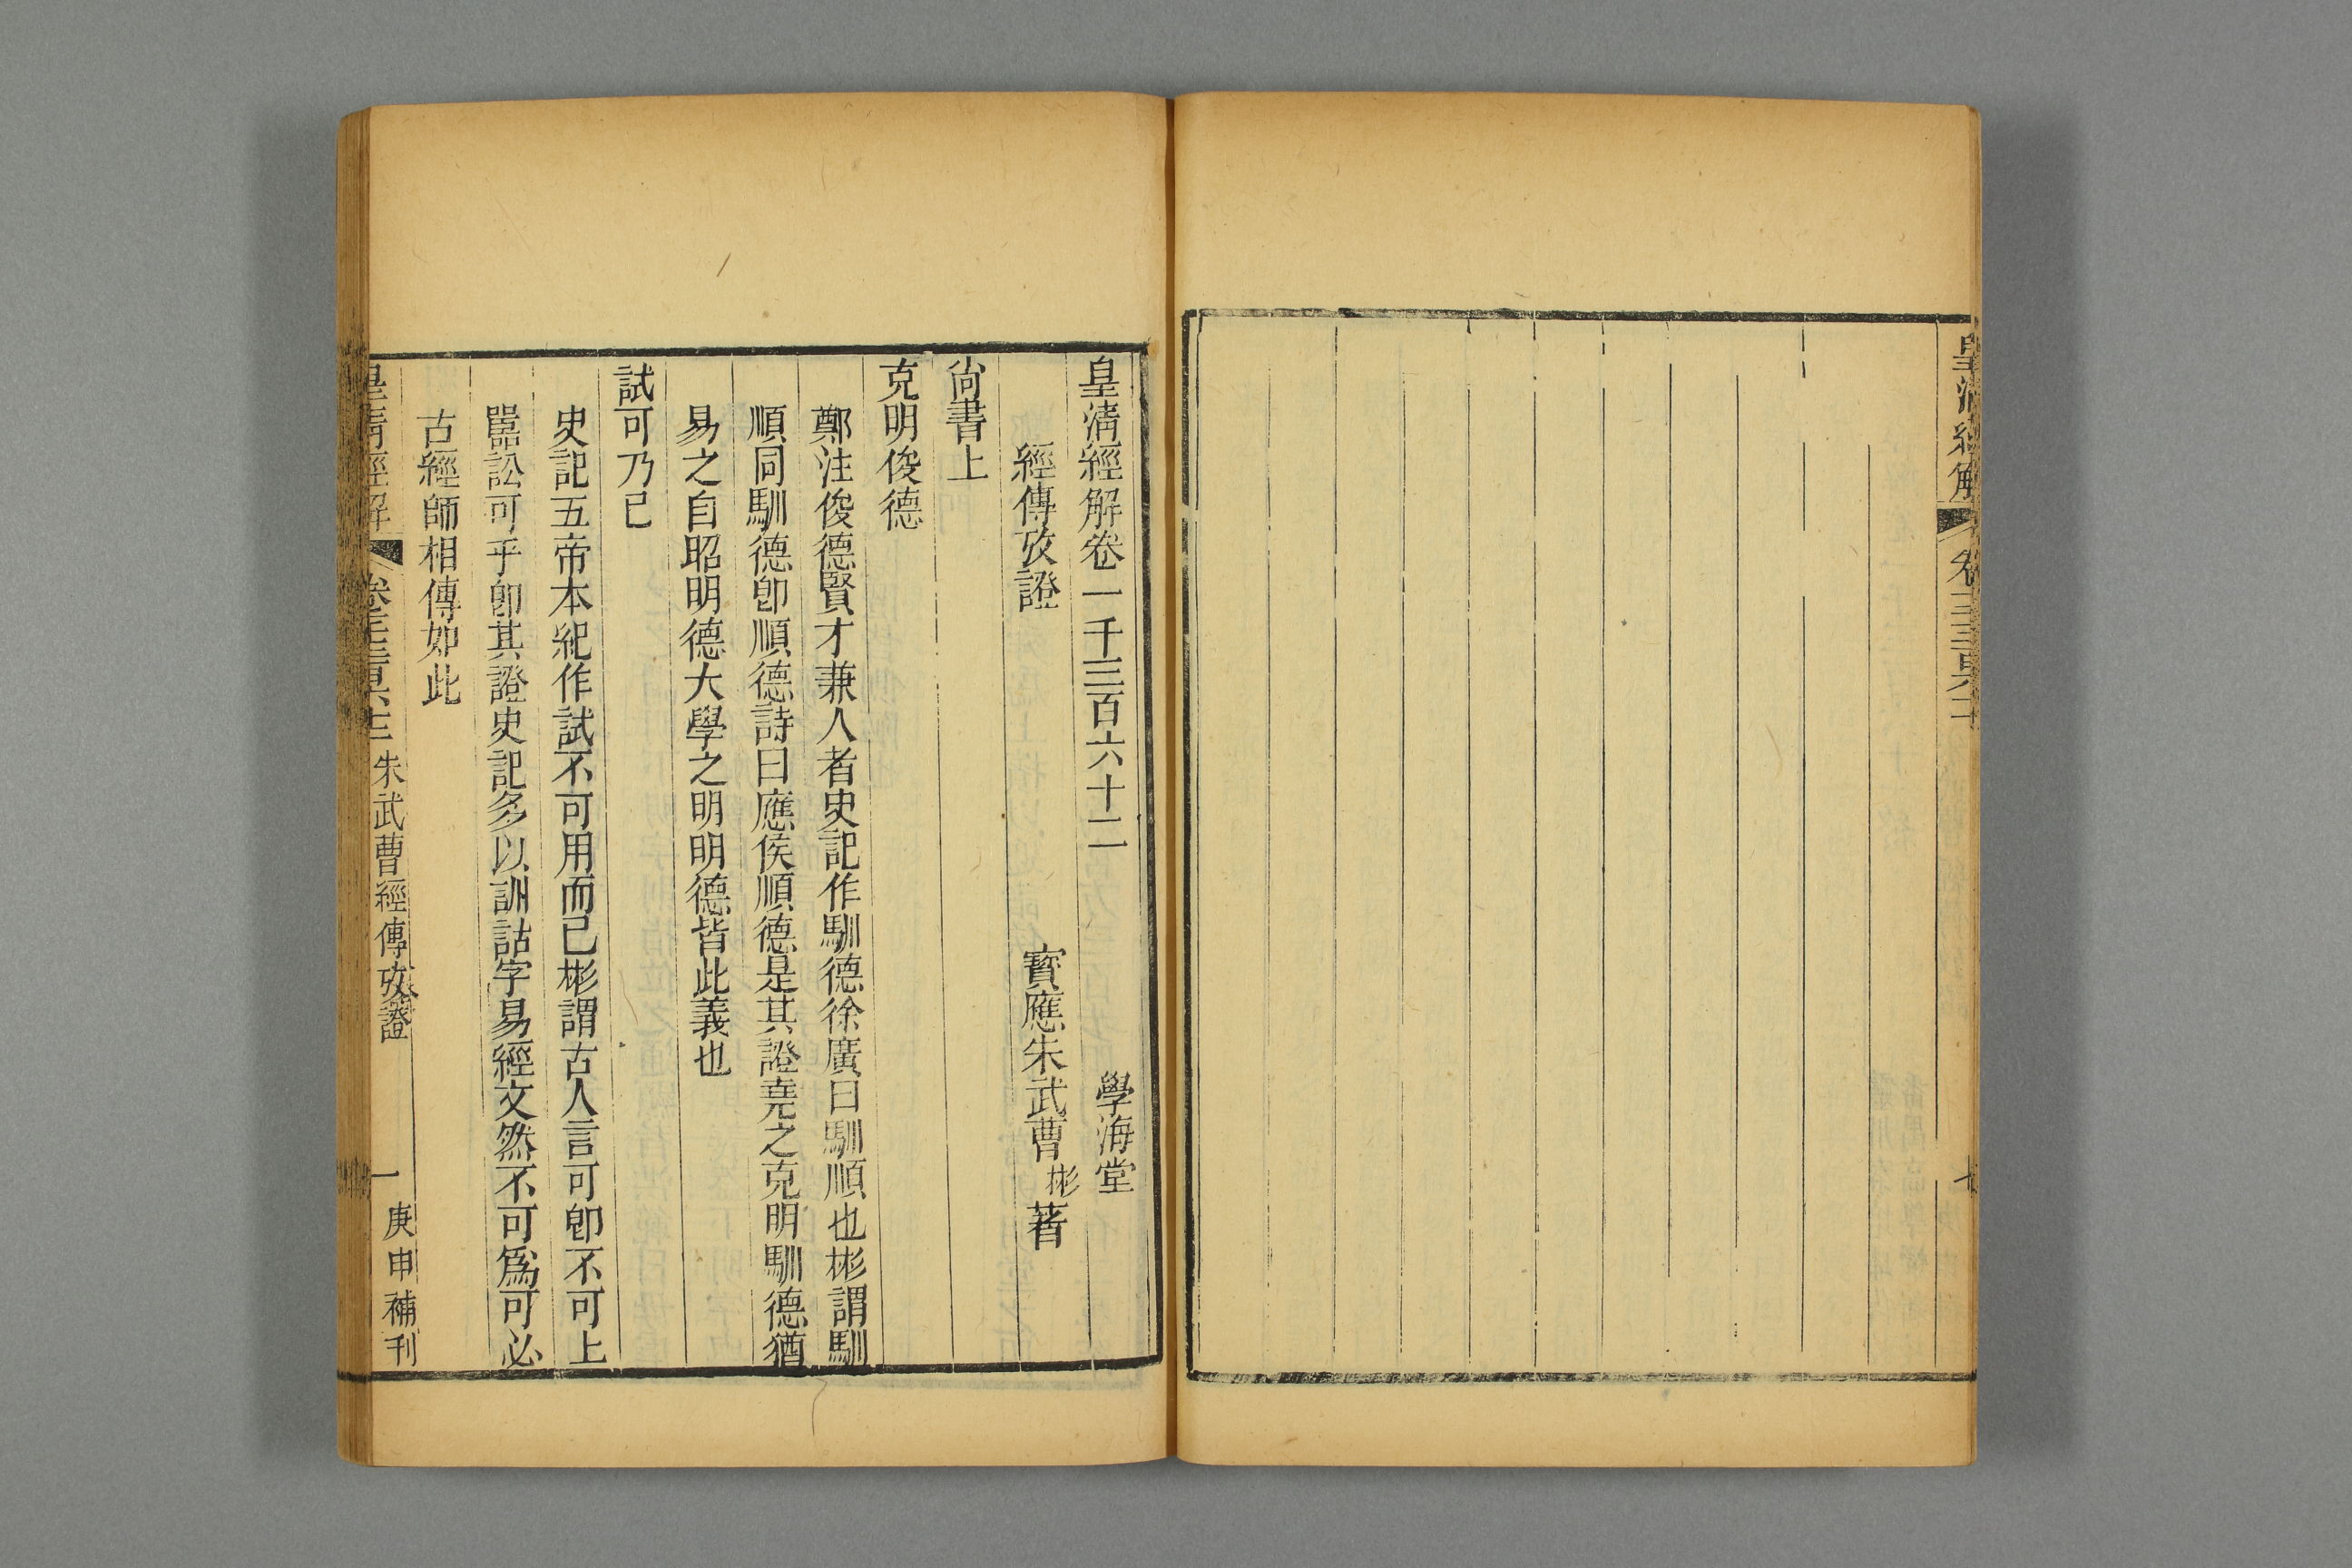 皇清經解
七
皇清經解卷一千三百六十二　學海堂
經傳攷證　寳應朱武曹彬著
尙書上
克明俊德
鄭注俊德賢才兼人者史記作馴德徐廣曰馴順也彬謂馴
順同馴德卽順德詩曰應侯順德是其證堯之克明馴德猶
易之自昭明德大學之明明德皆此義也
試可乃已
史記五帝本紀作試不可用而已彬謂古人言可卽不可上
嚚訟可乎卽其證史記多以訓詁字易經文然不可爲可必
古經師相傳如此
皇清經解　朱武曹經傳攷證　一　庚申補刊